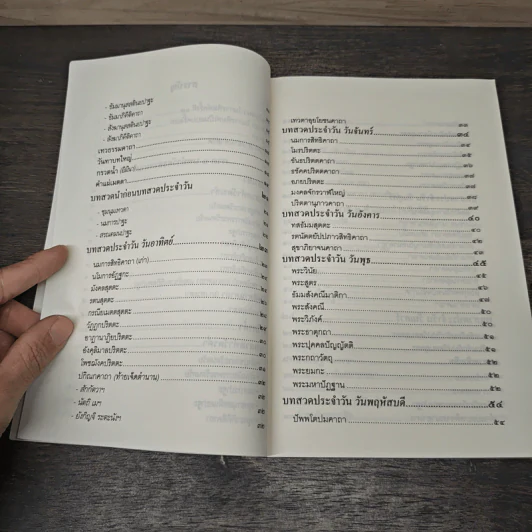 - ธัมมานุสสตินะปาฐะ
- ธัมมาภิคีติคาถา
- สังฆานุสสตินะปาฐะ
- สังฆาภิคีติคาถา
เทวธรรมคาถา
วันทาบทใหญ่
กรวดน้ำ (อิมินา)
คำแผ่เมตตา
บทสวดนำก่อนบทสวดประจำวัน
- ชุมนุมเทวดา
- นมการปาฐะ
- สรณคมนปาฐะ
บทสวดประจำวัน วันอาทิตย์
นมการสิทธิคาถา (เก่า)
นโมการอัฏฐกะ
มังคลสุตตะ
รตนสุตตะ
กรณียเมตตสุตตะ
วัฏฏกปริตตะ
อาฏานาฏิยปริตตะ
อังคุลิมาลปริตตะ
โพชฌังคปริตตะ
ปกิณกคาถา (ท้ายเจ็ดตำนาน)
- สักกัตวาฯ
- นัตถิ เมฯ
- ยังกิญจิ ระตะนังฯ
เทวตาอุยโยชนคาถา
บทสวดประจำวัน วันจันทร์ ๓๔
นมการสิทธิคาถา
โมรปริตตะ ๓๕
ขันธปริตตคาถา ๓๖
ธชัคคปริตตคาถา
อภยปริตตะ
มงคลจักรวาฬใหญ่
ปริตตานุภาวคาถา ๓๙
บทสวดประจำวัน วันอังคาร ๔๐
ทสธัมมสุตตะ ๔๐
รตนัตตยัปปภาวสิทธิคาถา ๔๒
สุขาภิยาจนคาถา ๔๓
บทสวดประจำวัน วันพุธ ๔๕
พระวินัย ๔๕
พระสูตร ๔๖
ธัมมสังคณีมาติกา ๔๗
พระสังคณี ๕๐
พระวิภังค์ ๕๐
พระธาตุกถา ๕๑
พระปุคคลปัญญัตติ ๕๑
พระกถาวัตถุ ๕๒
พระยมกะ ๕๒
พระมหาปัฏฐาน ๕๒
บทสวดประจำวัน วันพฤหัสบดี ๕๔
ปัพพโตปมคาถา ๕๔